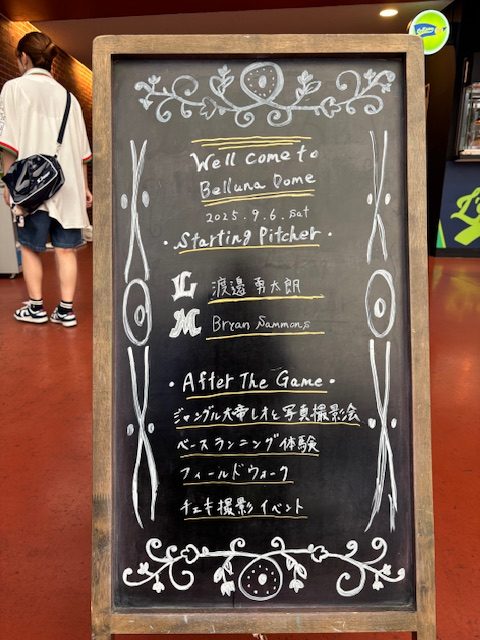 Well come to
Belluna Dome
2025.9.6.sat
・Starting Pitcher・
L 渡邉勇太朗
M Bryan Sammons
・After The Game・
ジャングル大帝レオと写真撮影会
ベースランニング体験
フィールドウォーク
チェキ撮影イベント